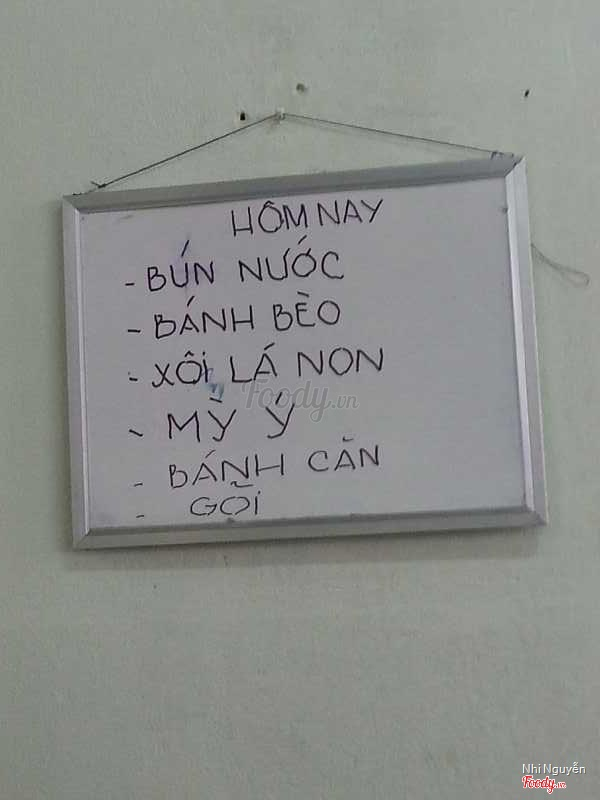 HÔM NAY
- BÚN NƯỚC
- BÁNH BÈO
- XÔI LÁ NON
- MỲ Ý
- BÁNH CĂN
- GỎI
Foody.vn
Nhi Nguyễn
Foody.vn